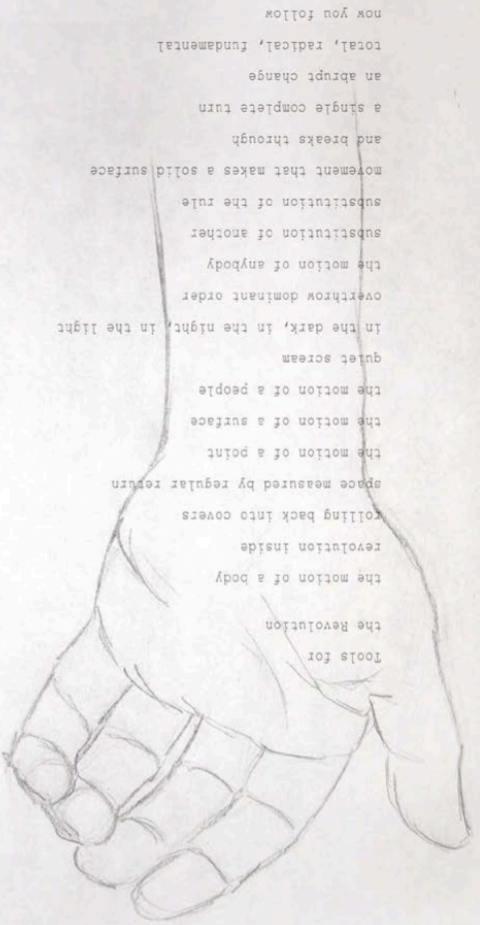 Tools for
the Revolution
the motion of a body
revolution inside
rolling back into covers
space measured by regular return
the motion of a point
the motion of a surface
the motion of a people
quiet scream
in the dark, in the night, in the light
overthrow dominant order
the motion of anybody
substitution of another
substitution of the rule
movement that makes a solid surface
and breaks through
a single complete turn
an abrupt change
total, radical, fundamental
now you follow